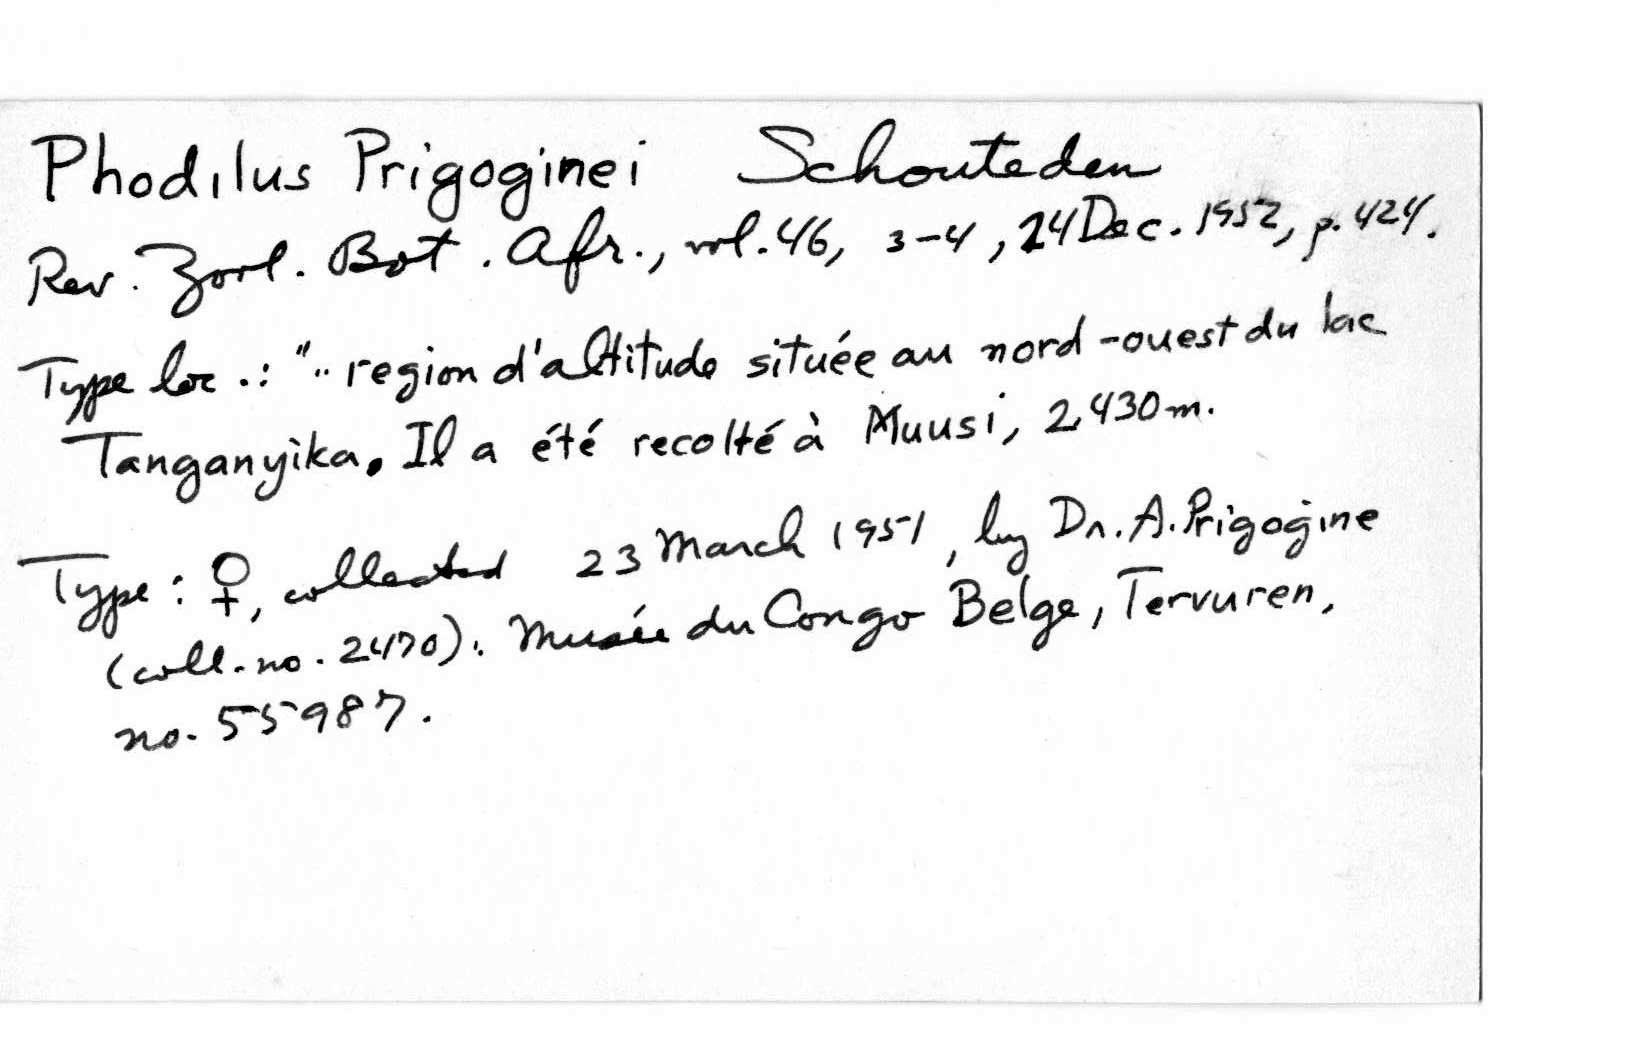 Phodilus Prigoginei Schouteden
Rev. Zool. Bot. Afr., vol. 46, 3-4, 24 Dec. 1952, p. 424.
Type loc.: ".. region d'altitude située au nord-ouest du lac
Tanganyika. Il a été recolté à Muusi, 2,430 m.
Type: ♀, collected 23 March 1951, by Dr. A. Prigogine
(coll. no. 2470). Musée du Congo Belge, Tervuren,
no. 55987.